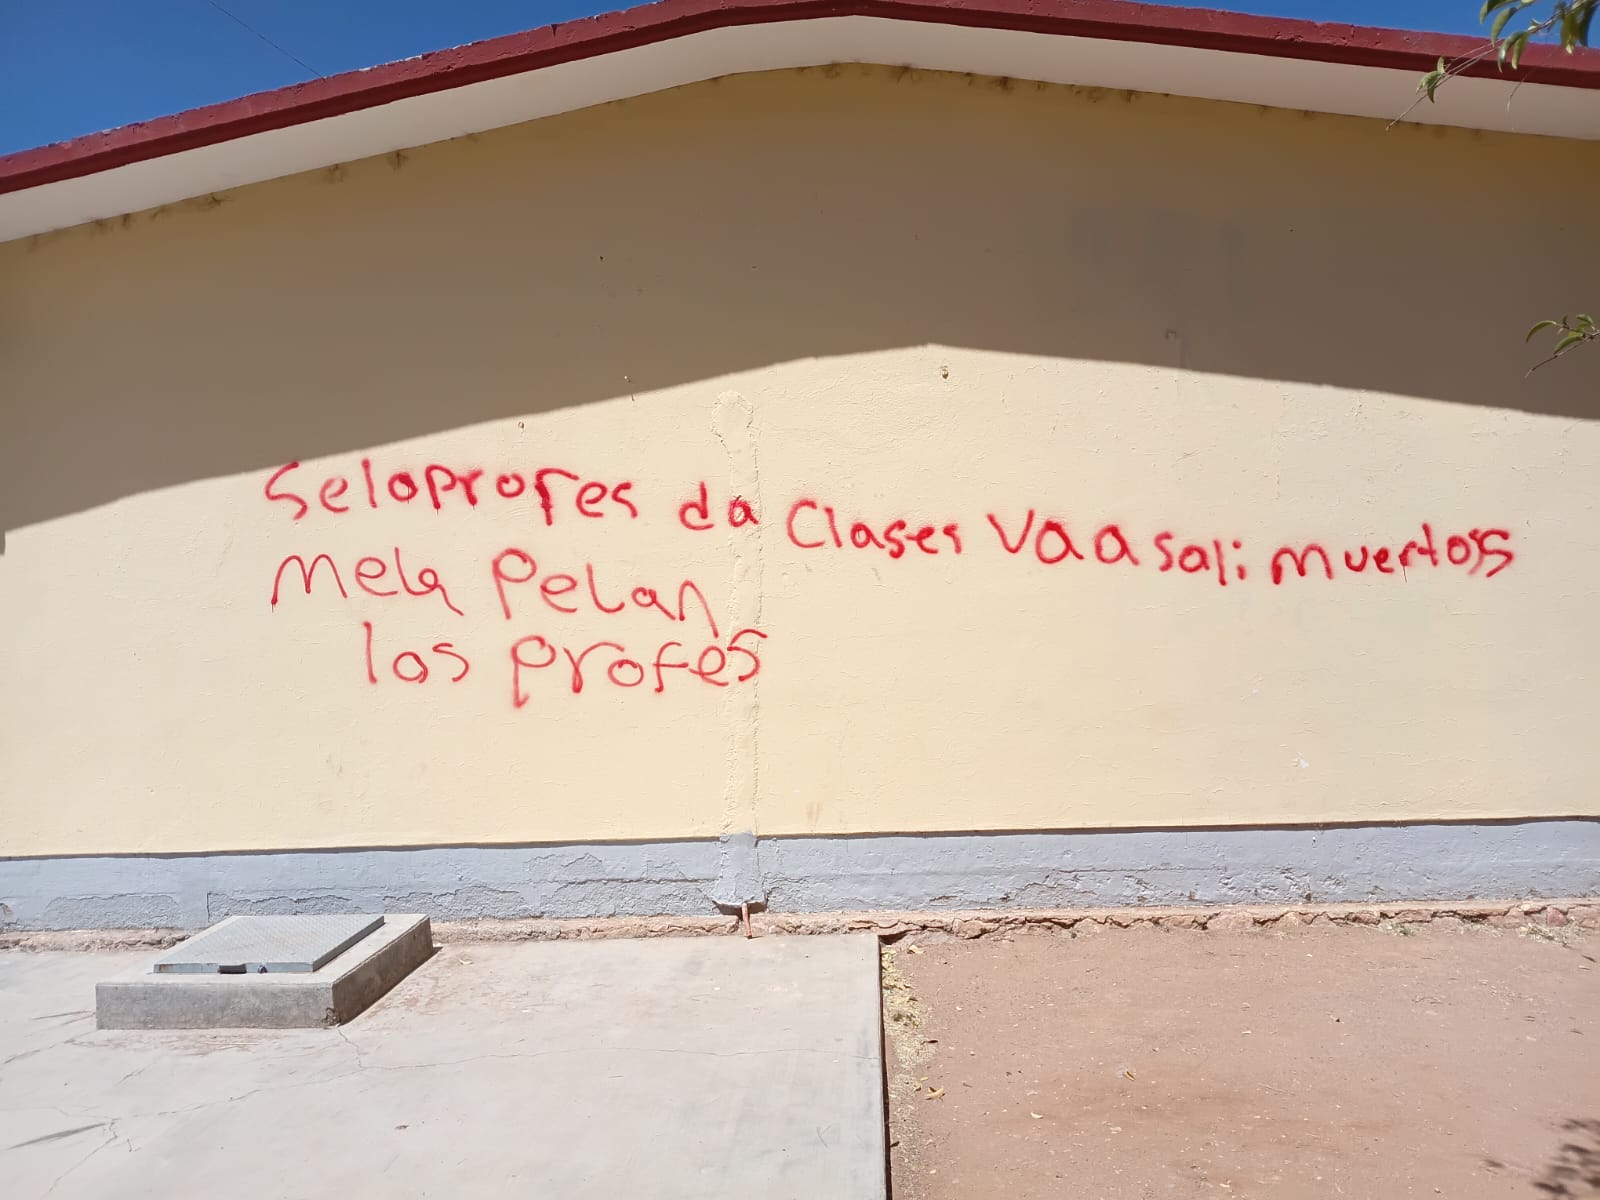 Seloprofes da Clases Vaasali muertoss
Mela Pelan
los profes